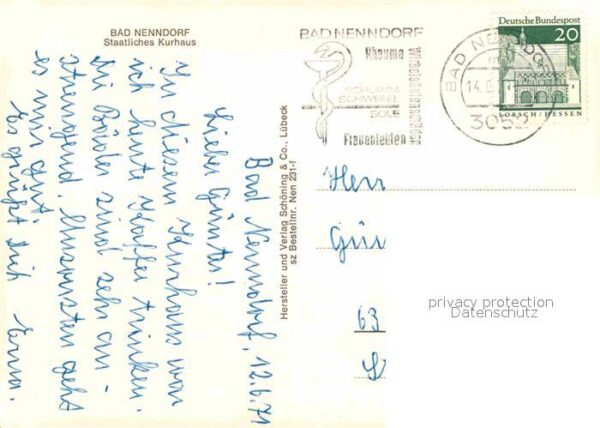 BAD NENNDORF
Staatliches Kurhaus
Bad Nenndorf, 12.6.71
Lieber Günter!
In diesem Kurhaus war
ich heute Kaffee trinken.
Die Bäder sind sehr an-
strengend. Ansonsten geht
es mir gut.
Es grüßt Dich Erna.
Hersteller und Verlag Schöning & Co., Lübeck
sz Bestellnr. Nen 231-f
BAD NENNDORF
Rheuma
Wirbelsäulenschäden
SCHLAMM
SCHWEFEL
SOLE
Frauenleiden
BAD NENNDORF
14.
3052
Deutsche Bundespost
20
LORSCH/HESSEN
Herr
Gün
63
privacy protection
Datenschutz